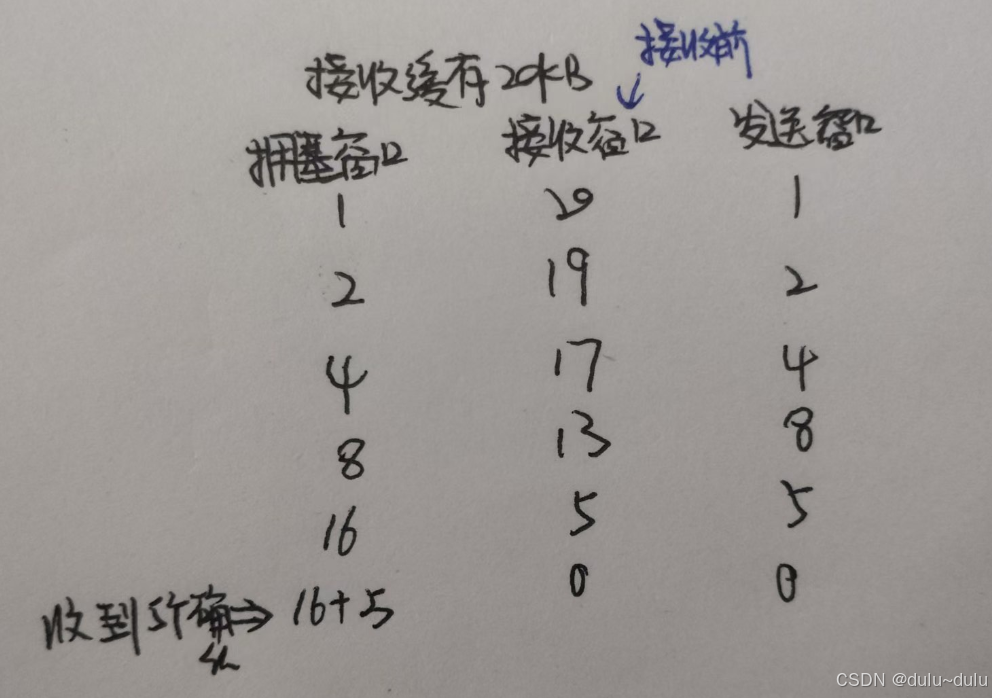 接收前
接收缓存20KB
拥塞窗口 接收窗口 发送窗口
1 20 1
2 19 2
4 17 4
8 13 8
16 5 5
收到5个确认⇒ 16+5 0 0
CSDN @dulu~dulu